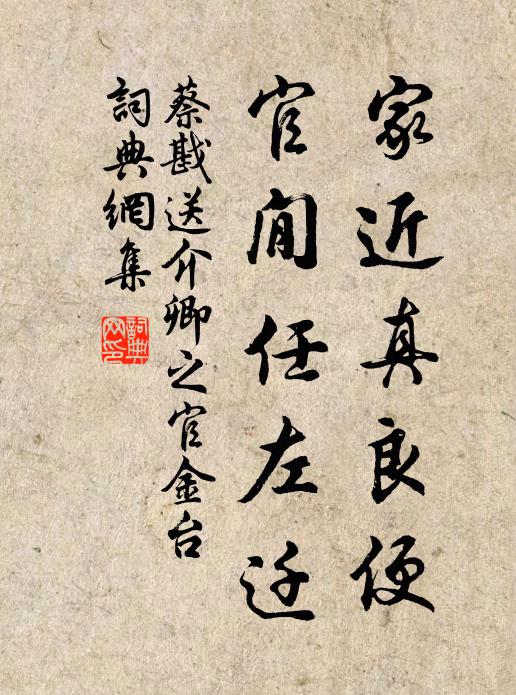 家近真良便
官閒任左迁
蔡戡送介卿之官金台
詞典網集
詞典網印